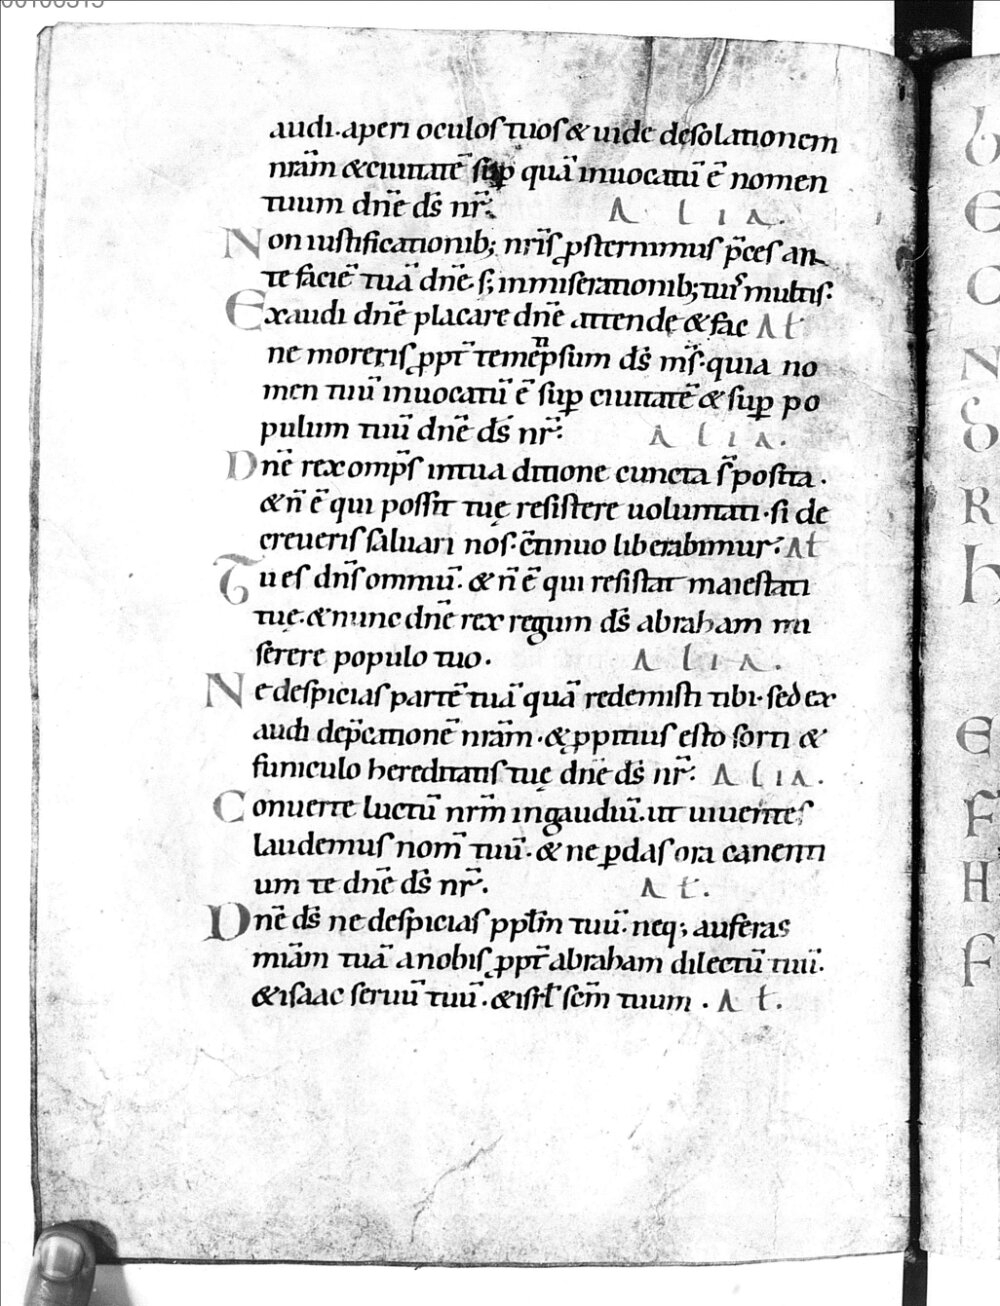 audi. aperi oculos tuos & uide desolationem
nr̄am & ciuitatē sup quā inuocatū ē nomen
tuum dn̄e ds̄ nr̄. A l i a .
Non iustificationib; nr̄is ꝓsternimus p̄ces an
te faciē tuā dn̄e. s; inmiserationib; tuis multis.
Exaudi dn̄e placare dn̄e attende & fac At
ne moreris ꝓpt̄ temeꝑ̄sum ds̄ ms̄. quia no
men tuū inuocatū ē suꝑ ciuitatē & suꝑ po
pulum tuū dn̄e ds̄ nr̄. A l i a .
Dn̄e rex omp̄s intua ditione cuncta s̄ posita .
& n̄ ē qui possit tuę resistere uoluntati. si de
creueris saluari nos. c̄tinuo liberabimur. At
Tu es dn̄s omniū. & n̄ ē qui resistat maiestati
tuę. & nunc dn̄e rex regum ds̄ abraham mi
serere populo tuo. A l i a .
Ne despicias partē tuā quā redemisti tibi. sed ex
audi dep̄cationē nr̄am. & ꝓpitius esto sorti &
funiculo hereditatis tuę dn̄e ds̄ nr̄. A l i a .
Conuerte luctū nr̄m ingaudiū. ut uiuentes
laudemus nom̄ tuū. & ne ꝑdas ora canenti
um te dn̄e ds̄ nr̄. A t .
Dn̄e ds̄ ne despicias ppl̄m tuū. neq; auferas
mīam tuā anobis ꝓpt̄ abraham dilectū tuū.
& isaac seruū tuū. & isrl̄ sc̄m tuum . A t .